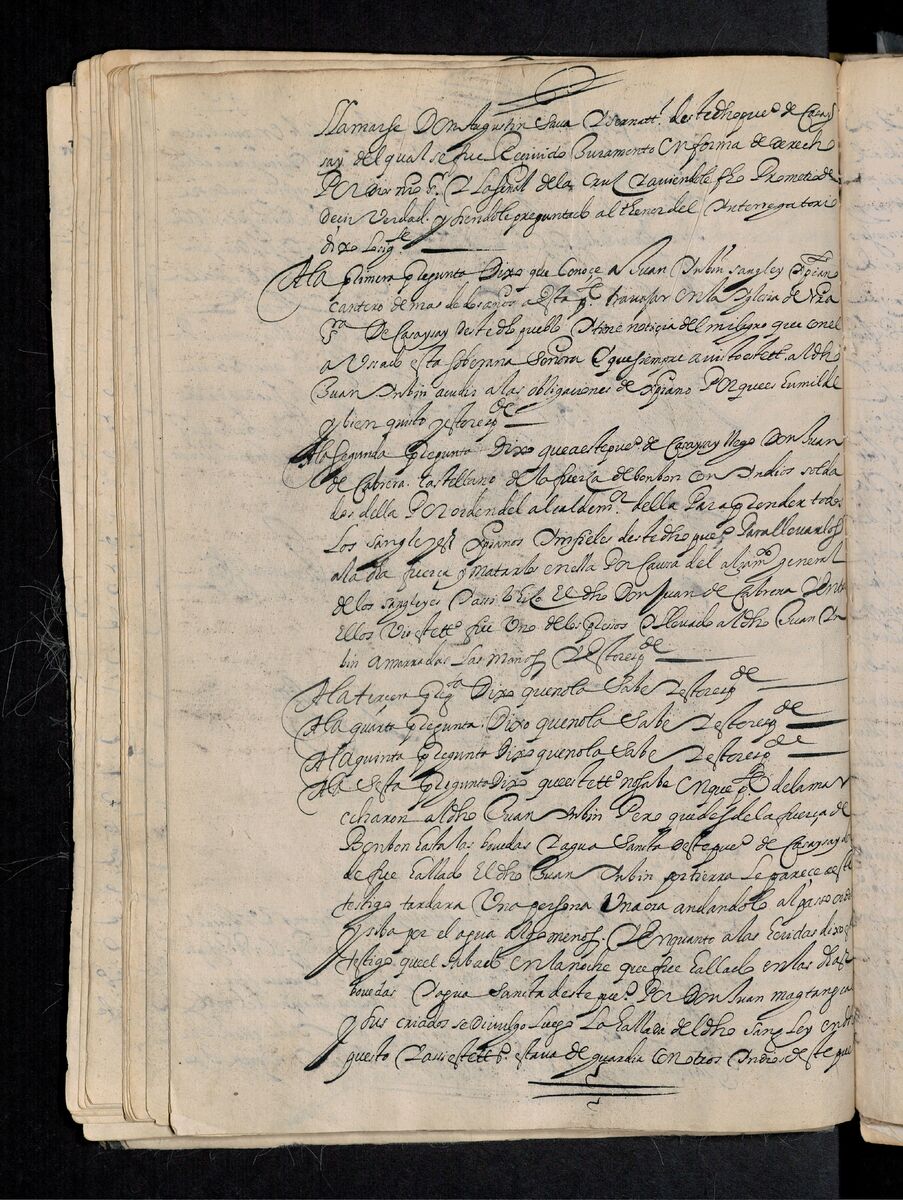 llamarse Don Augustin Sava y ser natl deste dho pueo de Casay
say del qual se fue Recivido Juramento en forma de derech
Por dios nro sr. y la señal de la Cruz y aviendole fho Prometio de
decir verdad. y siendole preguntado al thenor del Interrogatori
dixo lo sigte
A la primera pregunta Dixo que conoce a Juan Inbin sangley Xpiano
cantero de mas de dos años a esta pte travajar en la Iglesia de Nra
sra De Casaysay deste dho pueblo y tiene noticia del milagro que con el
a Usado esta soberana señora y que siempre a visto este to. al dho
Juan Inbin acudir a las obligaciones de Xpiano Por que es humilde
y bien quisto y esto respde
A la segunda pregunta Dixo que a este pueo de Casaysay llego Don Juan
de Cabrera. Castellano de la fuerça de bonbon con Indios solda
dos della Por orden del alcalde mr. della Para prender todos
los sangleyes Xpianos Infieles deste dho pueo Para llevarlos
a la dha fuerça y matarlos en ella Por causa del alzamto general
de los sangleyes y assi lo hiço El dho Don Juan de Cabrera y entre
Ellos vio este to fue Uno de los presos y llevado al dho Juan In
bin amarradas las manos y esto respde
A la tercera prega Dixo que no la Sabe y esto respde
A la quarta Pregunta Dixo que no la Sabe y esto respde
A la quinta Pregunta Dixo que no la Sabe y esto respde
A la Sesta Pregunta Dixo que este to no sabe en que pte de la mar
echaron al dho Juan Inbin Pero que desde la fuerça de
Bonbon hasta las bovedas y agua Santa deste pueo de Casaysay
de fue hallado El dho Juan Inbin por tierra le parece a este
testigo tardara Una persona Una ora andandolo al passo
y si ba por el agua algo menos. y en quanto a las heridas dixo
testigo que el sabado en la noche que fue hallado en las dhas
bovedas y agua Santa deste pueo. Por Don Juan magtanga
y sus criados se divulgo luego la hallada del dho Sangley en
puesto y assi este to estava de guardia con otros Indios deste pue